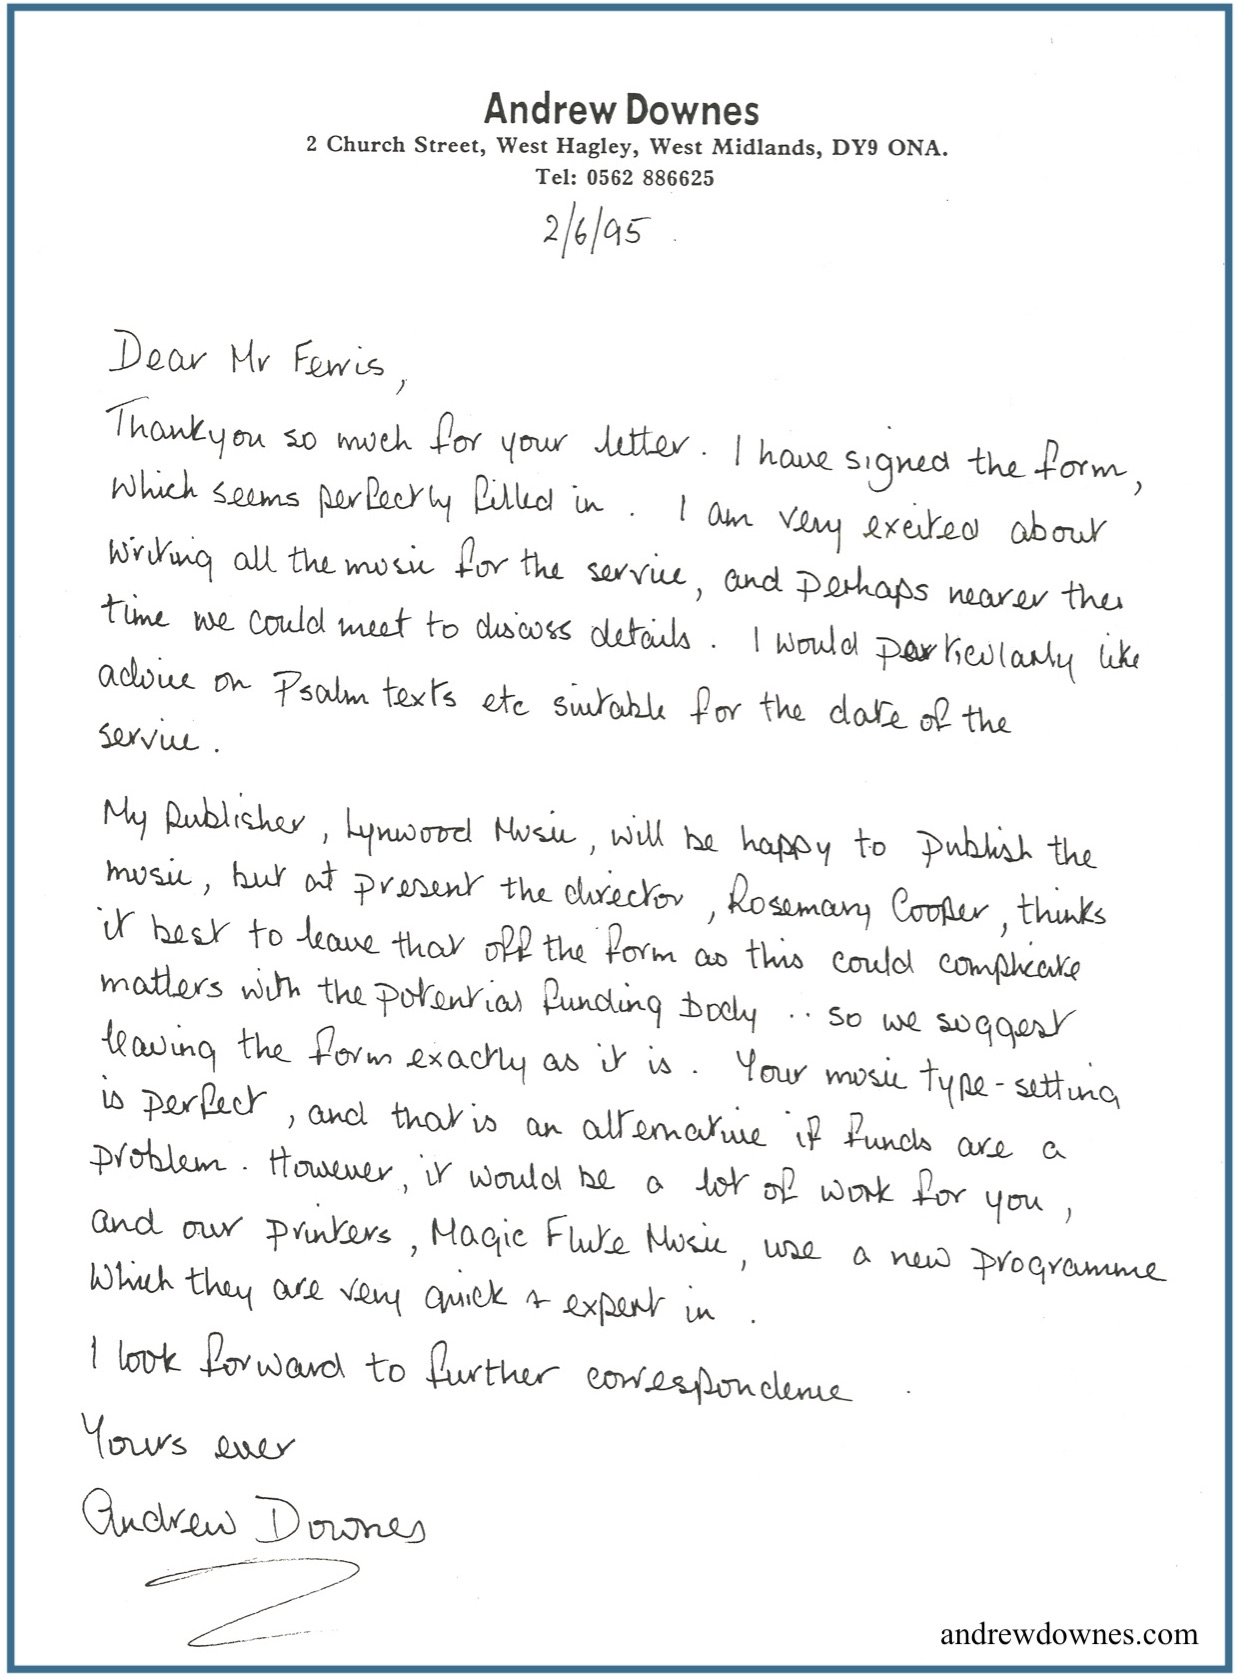 Andrew Downes
2 Church Street, West Hagley, West Midlands, DY9 ONA.
Tel: 0562 886625
2/6/95
Dear Mr Ferris,
Thankyou so much for your letter. I have signed the form,
which seems perfectly filled in. I am very excited about
writing all the music for the service, and perhaps nearer the
time we could meet to discuss details. I would particularly like
advice on Psalm texts etc suitable for the date of the
service.
My publisher, Lynwood Music, will be happy to publish the
music, but at present the director, Rosemary Cooper, thinks
it best to leave that off the form as this could complicate
matters with the potential funding body .. so we suggest
leaving the form exactly as it is. Your music type-setting
is perfect, and that is an alternative if funds are a
problem. However, it would be a lot of work for you,
and our printers, Magic Flute Music, use a new programme
which they are very quick & expert in.
I look forward to further correspondence.
Yours ever
Andrew Downes
andrewdownes.com